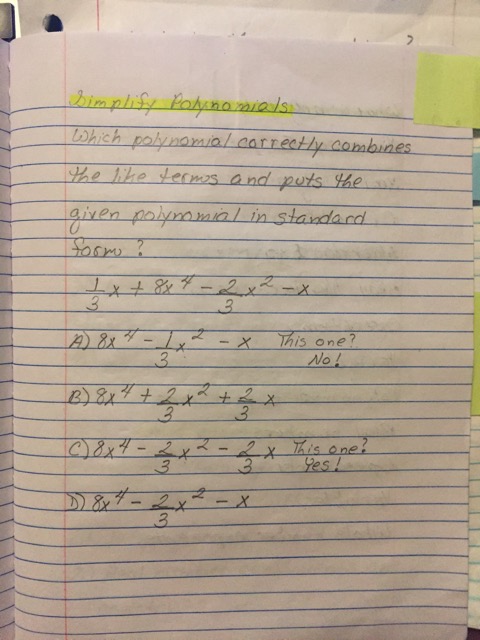 Simplify Polynomials
Which polynomial correctly combines
the like terms and puts the
given polynomial in standard
form?
1/3 x + 8x^4 - 2/3 x^2 - x
A) 8x^4 - 1/3 x^2 - x This one? No!
B) 8x^4 + 2/3 x^2 + 2/3 x
C) 8x^4 - 2/3 x^2 - 2/3 x This one? Yes!
D) 8x^4 - 2/3 x^2 - x